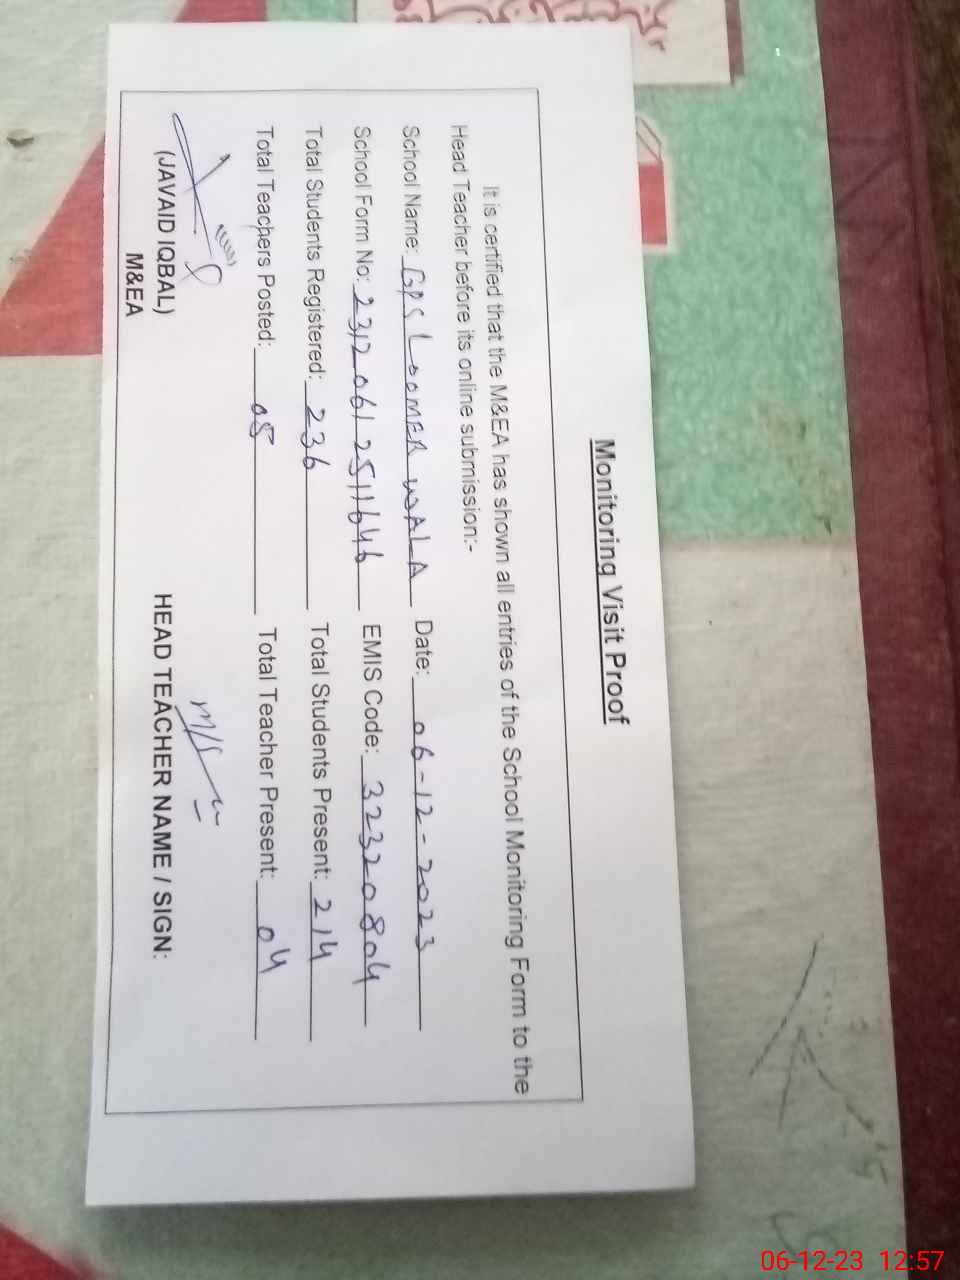 Monitoring Visit Proof
It is certified that the M&EA has shown all entries of the School Monitoring Form to the
Head Teacher before its online submission:-
School Name: GPS LOOMER WALA Date: 06-12-2023
School Form No: 2312061 2511646 EMIS Code: 32320804
Total Students Registered: 236 Total Students Present: 214
Total Teachers Posted: 05 Total Teacher Present: 04
(JAVAID IQBAL) HEAD TEACHER NAME / SIGN:
M&EA
06-12-23 12:57